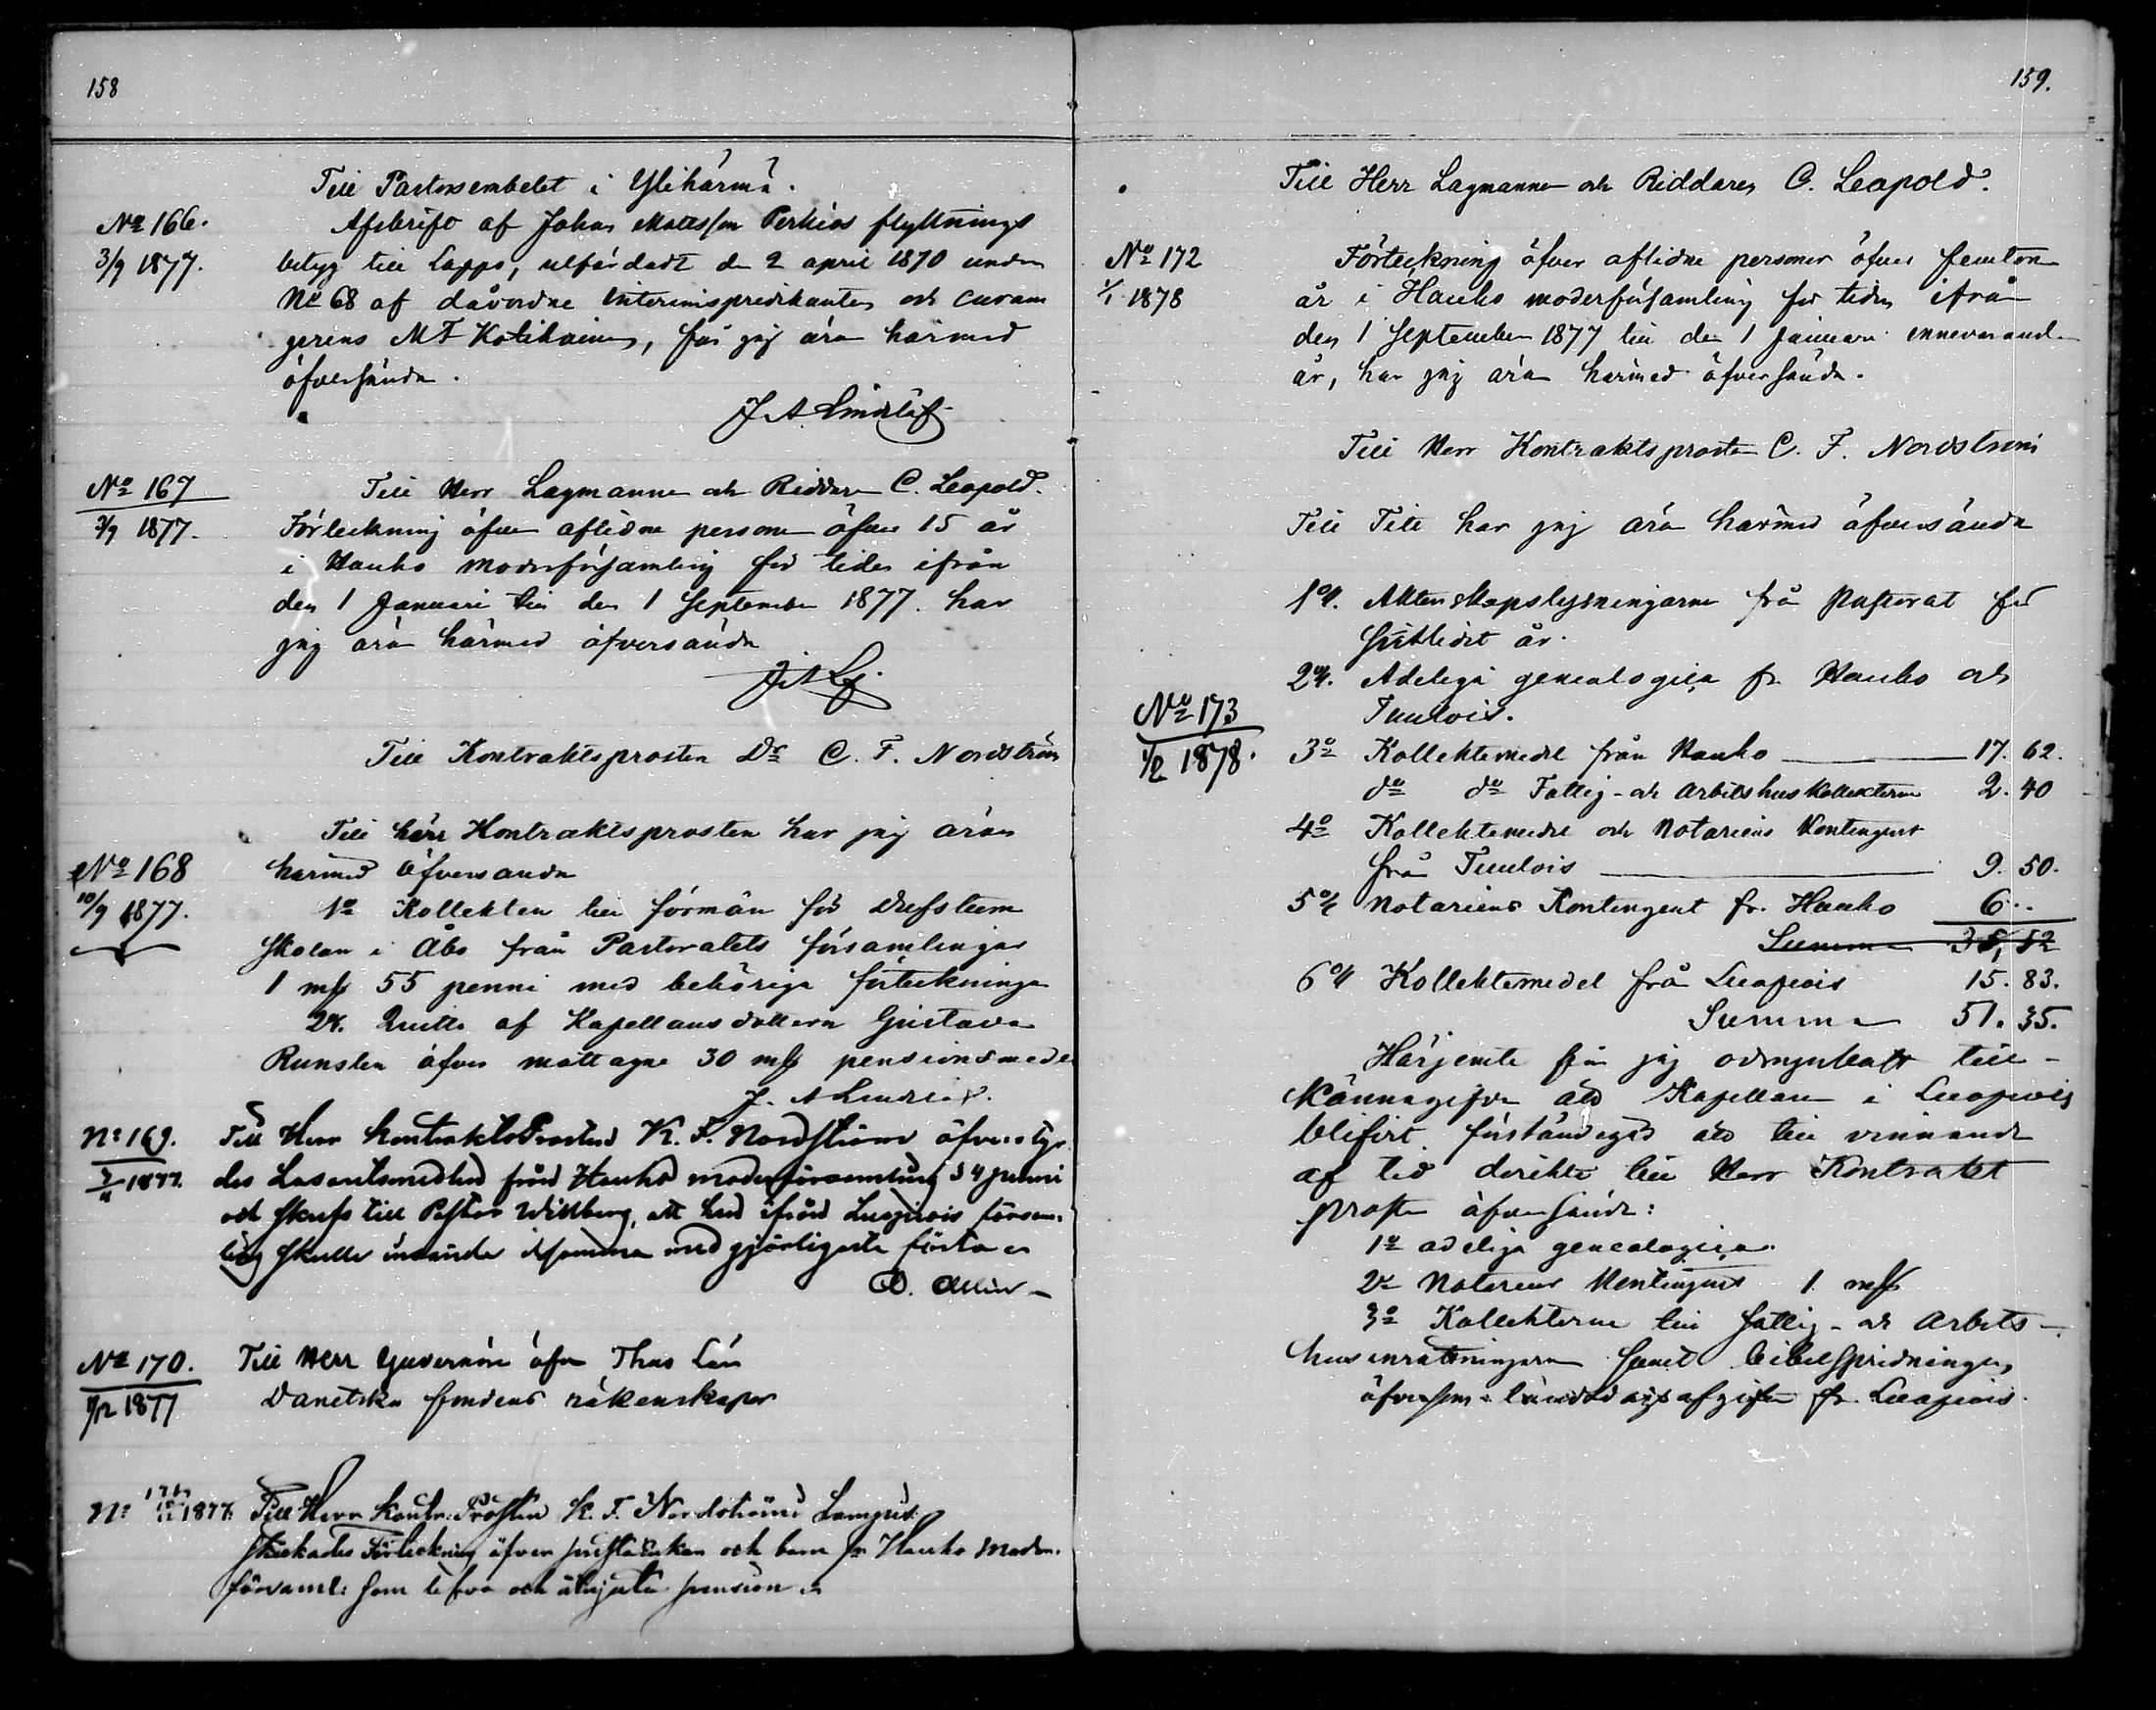 158
Till Pastorsembetet i Ylihärmä.
No 166.
3/9 1877.
Afskrift af Johan Mattsson Perkiös flyttnings
betyg till Lappo, utfärdadt den 2 april 1870 under
No 68 af dåvardne Interimspredikanten och curam
gerens M F Kotikainen, får jag äran härmed
öfversända.
J. A. Lindelöf
No 167
3/9 1877.
Till Herr Lagmannen och Riddaren C. Leopold.
Förteckning öfver aflidne personer öfver 15 år
i Hauho moderförsamling för tiden ifrån
den 1 Januari till den 1 September 1877. har
jag äran härmed öfversända
J A Lf.
Till Kontraktsprosten Dr C. F. Nordström
Till herr Kontraktsprosten har jag äran
No 168
10/9 1877.
härmed öfversända
1o Kollekten till förmån för Döfstum
skolan i Åbo från Pastoratets församlingar
1 mk 55 penni med behöriga förteckningar
2o. Quitto af Kapellansdottern Gustava
Runsten öfver mottagne 30 mk pensionsmedel
J. A Lindelöf.
No 169.
1877.
Till Herr KontraktsProsten K. F. Nordström öfversty-
des Lasarettsmedlen från Hauho moderförsamling 54 penni
och skrefs till Pastor Widberg, att han ifrån Luopiois försam-
ling skulle insända desamma med gjörligaste första
No 170.
11/12 1877
Till Herr Guvernören öfver Thus Län
Danetska fondens räkenskaper
No 171 1877.
Till Herr Kontr: Prosten K. F. Nordström i Lampis
skickades Förteckning öfver prestenkor och barn fr Hauho moder-
församl: som lefva och åtnjuta pension
159.
Till Herr Lagmannen och Riddaren C. Leopold.
No 172
1/1 1878
Förteckning öfver aflidne personer öfver femton
år i Hauho moderförsamling för tiden ifrån
den 1 September 1877 till den 1 Januari innevarande
år, har jag äran härmed öfversända.
Till Herr Kontraktsprosten C. F. Nordström
Till Tite har jag äran härmed öfversända
1o. Äktenskapslysningarne från Pastorat för
sistlidet år.
2o. Adeliga genealogier fr. Hauho och
Tuulois.
No 173
1/2 1878.
3o Kollektmedel från Hauho 17. 62.
do do Fattig- och Arbetshuskollekterne 2. 40
4o Kollektmedel och Notariens Kontingent
från Tuulois 9. 50.
5o Notariens Kontingent fr. Hauho 6..
Summa 35, 52
6o Kollektemedel från Luopiois 15. 83.
Summa 51. 35.
Härjemte får jag ödmjukast till-
kännagifva att Kapellanen i Luopiois
blifvit förständigad att till vinnande
af tid direkte till Herr Kontrakts
prosten öfversända:
1o adeliga genealogier.
2o Notariens Kontingent 1 mk
3o Kollekterne till fattig- och Arbets-
husinrättningarne samt bibelspridningen,
äfvensom landtdagsafgiften fr. Luopiois.